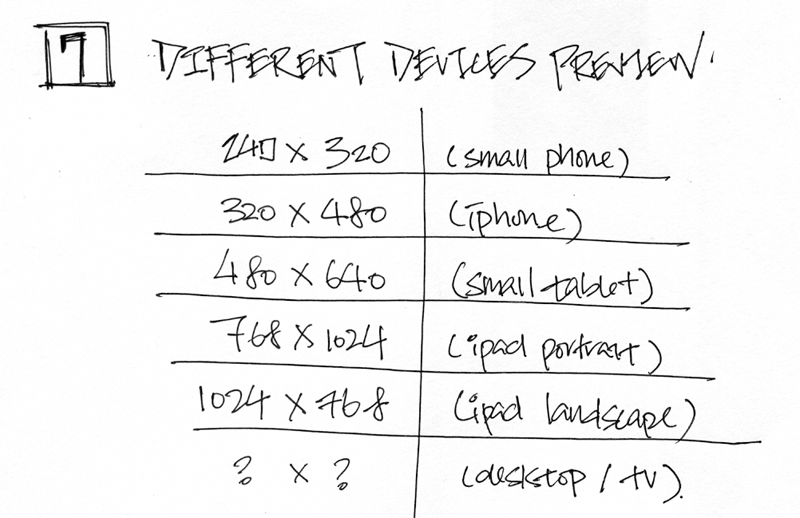 7 DIFFERENT DEVICES PREVIEW.
240 X 320 (small phone)
320 X 480 (iphone)
480 X 640 (small tablet)
768 X 1024 (ipad portrait)
1024 X 768 (ipad landscape)
? X ? (desktop / tv).